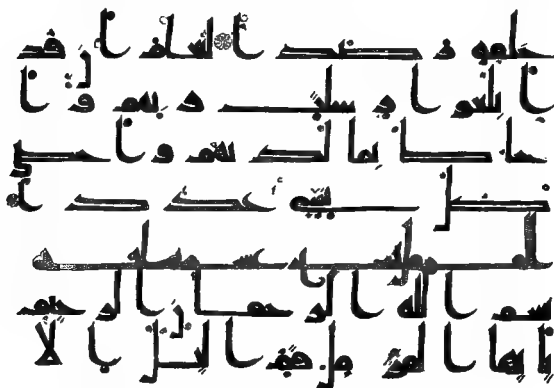 خلفه رصدا ليعلم ان قد
ابلغوا رسلت ربهم و ا
حاط بما لديهم و احصى
كل شى عددا
بسم الله الرحمن الرحيم
يايها المزمل قم اليل ا لا